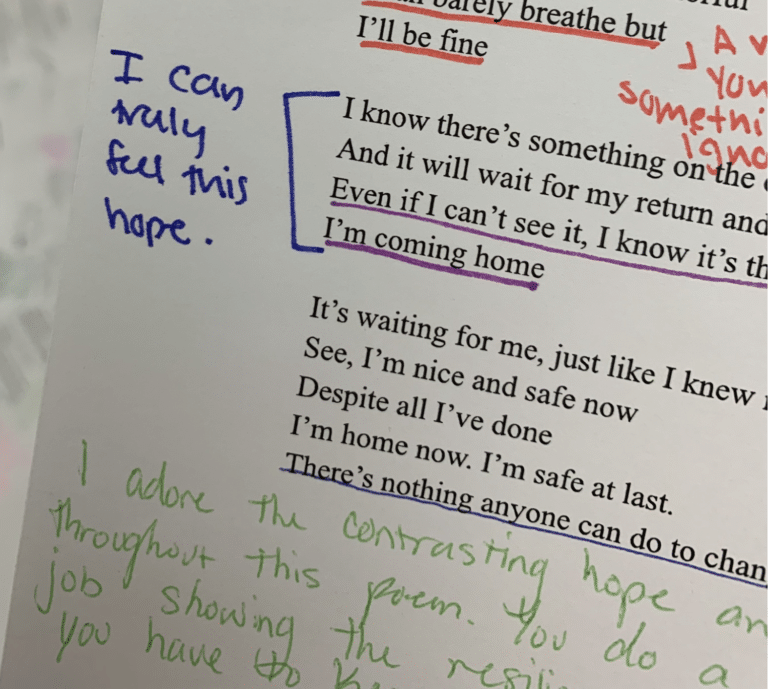 barely breathe but
I'll be fine
A
something
I can
truly
feel this
hope.
I know there's something on the
And it will wait for my return and
Even if I can't see it, I know it's
I'm coming home
It's waiting for me, just like I knew
See, I'm nice and safe now
Despite all I've done
I'm home now. I'm safe at last.
There's nothing anyone can do to
I adore the contrasting hope
throughout this poem. You do a
job showing the
you have to